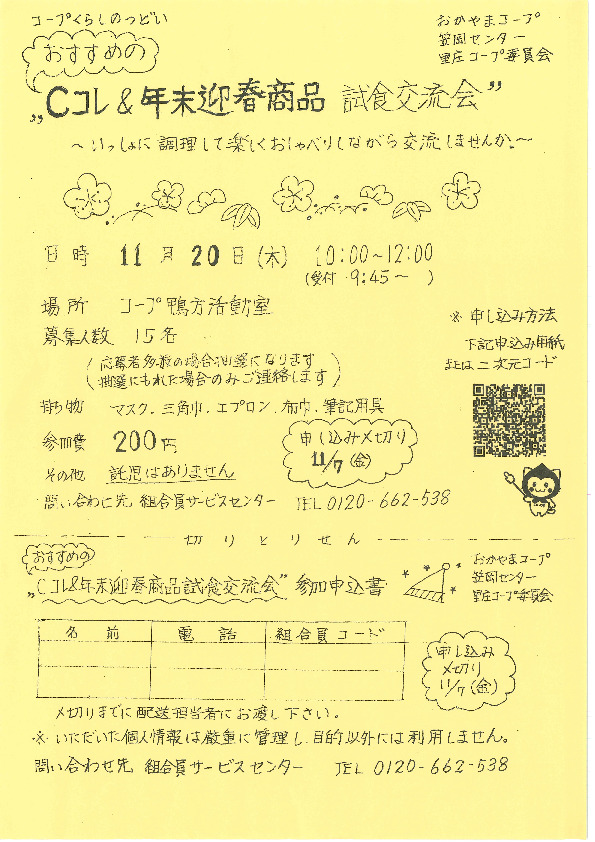 コープくらしのつどい
おかやまコープ
笠岡センター
里庄コープ委員会
おすすめの
"Cコレ&年末迎春商品 試食交流会"
～いっしょに調理して楽しくおしゃべりしながら交流しませんか。～
日時 11月20日(木) 10:00~12:00
(受付 9:45~ )
場所 コープ鴨方活動室
募集人数 15名
(応募者多数の場合抽選になります
抽選にもれた場合のみご連絡します)
※申し込み方法
下記申込み用紙
または二次元コード
持ち物 マスク.三角巾.エプロン.布巾.筆記用具
参加費 200円
申し込み〆切り
11/7(金)
その他 託児はありません
問い合わせ先 組合員サービスセンター TEL 0120-662-538
切りとりせん
おすすめの
"Cコレ&年末迎春商品試食交流会"参加申込書
おかやまコープ
笠岡センター
里庄コープ委員会
名前 電話 組合員コード
申し込み
〆切り
11/7(金)
〆切りまでに配送担当者にお渡し下さい。
※いただいた個人情報は厳重に管理し、目的以外には利用しません。
問い合わせ先 組合員サービスセンター TEL 0120-662-538